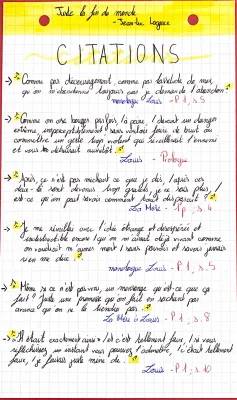 Juste la fin du monde
- Jean-Luc Lagarce
CITATIONS
→ "Comme par découragement, comme par lassitude de moi,
qu'on m'abandonna toujours car je demande l'abandon"
monologue Louis - P1, s.5
→ "Comme on ose bouger parfois, à peine, devant un danger
extrême, imperceptiblement, sans vouloir faire de bruit ou
commettre un geste trop violent qui réveillerait l'ennemi
et vous détruirait aussitôt."
Louis - Prologue
ce n'est pas méchant ce que je dis,
deux-là sont devenus trop je ne sais plus,
est-ce qu'on peut savoir comment tout disparaît ?"
La Mère - s.4
→ "Je me réveillai avec l'idée étrange et désespérée et
indestructible encore qu'on m'aimait déjà vivant comme
on voudrait m'aimer mort sans pouvoir et savoir jamais
rien me dire."
monologue Louis - P1, s.5
→ "Même si ce n'est pas vrai, un mensonge qu'est-ce que ça
fait ? Juste une promesse qu'on fait en sachant par
avance qu'on ne la tiendra pas."
La Mère à Louis - P1, s.8
→ "Il était exactement ainsi et c'est tellement faux, si vous
réfléchissez un instant vous pouvez l'admettre, c'était tellement
faux, je faisais juste mine de."
Louis - P1, s.10